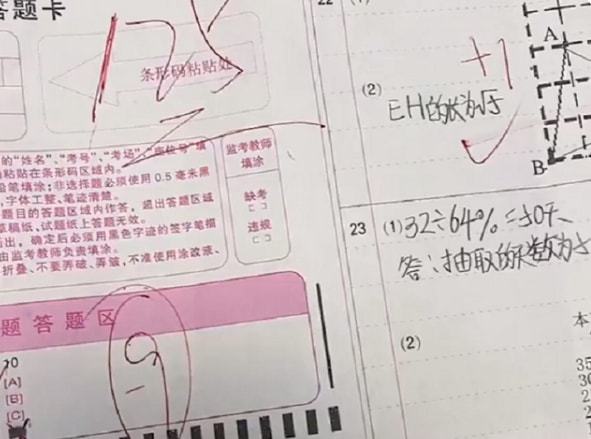 答题卡
条形码粘贴处
的"姓名"、"考号"、"考场"、"座位号"填
粘贴在条形码区域内。
铅笔填涂；非选择题必须使用0.5毫米黑
，字体工整、笔迹清楚。
题目的答题区域内作答，超出答题区域
草稿纸、试题纸上答题无效。
出，确定后必须用黑色字迹的签字笔描
由监考教师负责填涂。
折叠、不要弄破、弄皱，不准使用涂改液、
监考教师
填涂
缺考
违规
题答题区
10
[A]
[B]
[C]
22
(1)
A
B
+1
(2)
EH的长为√5
23
(1)32÷64%=50天、
答：抽取的天数为5
(2)
本
35
30
2
2